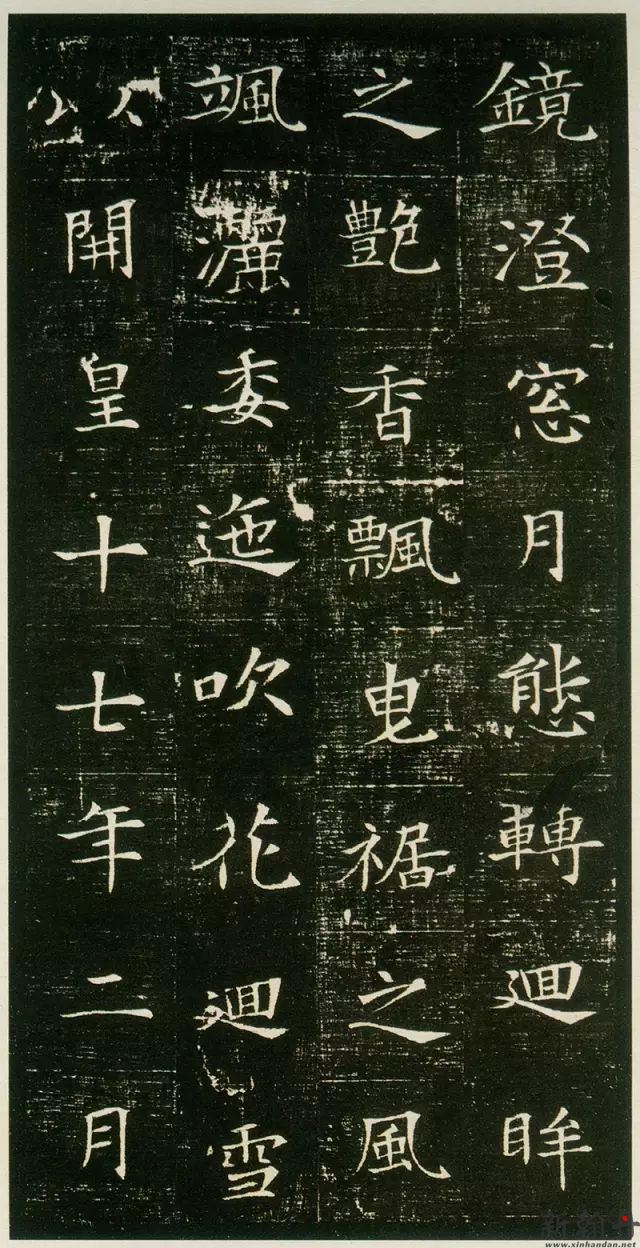 鏡澄窓月態轉廻眸
之艷香飄曳裾之風
颯灑委迤吹花廻雪
開皇十七年二月
新邯鄲
www.xinhandan.net